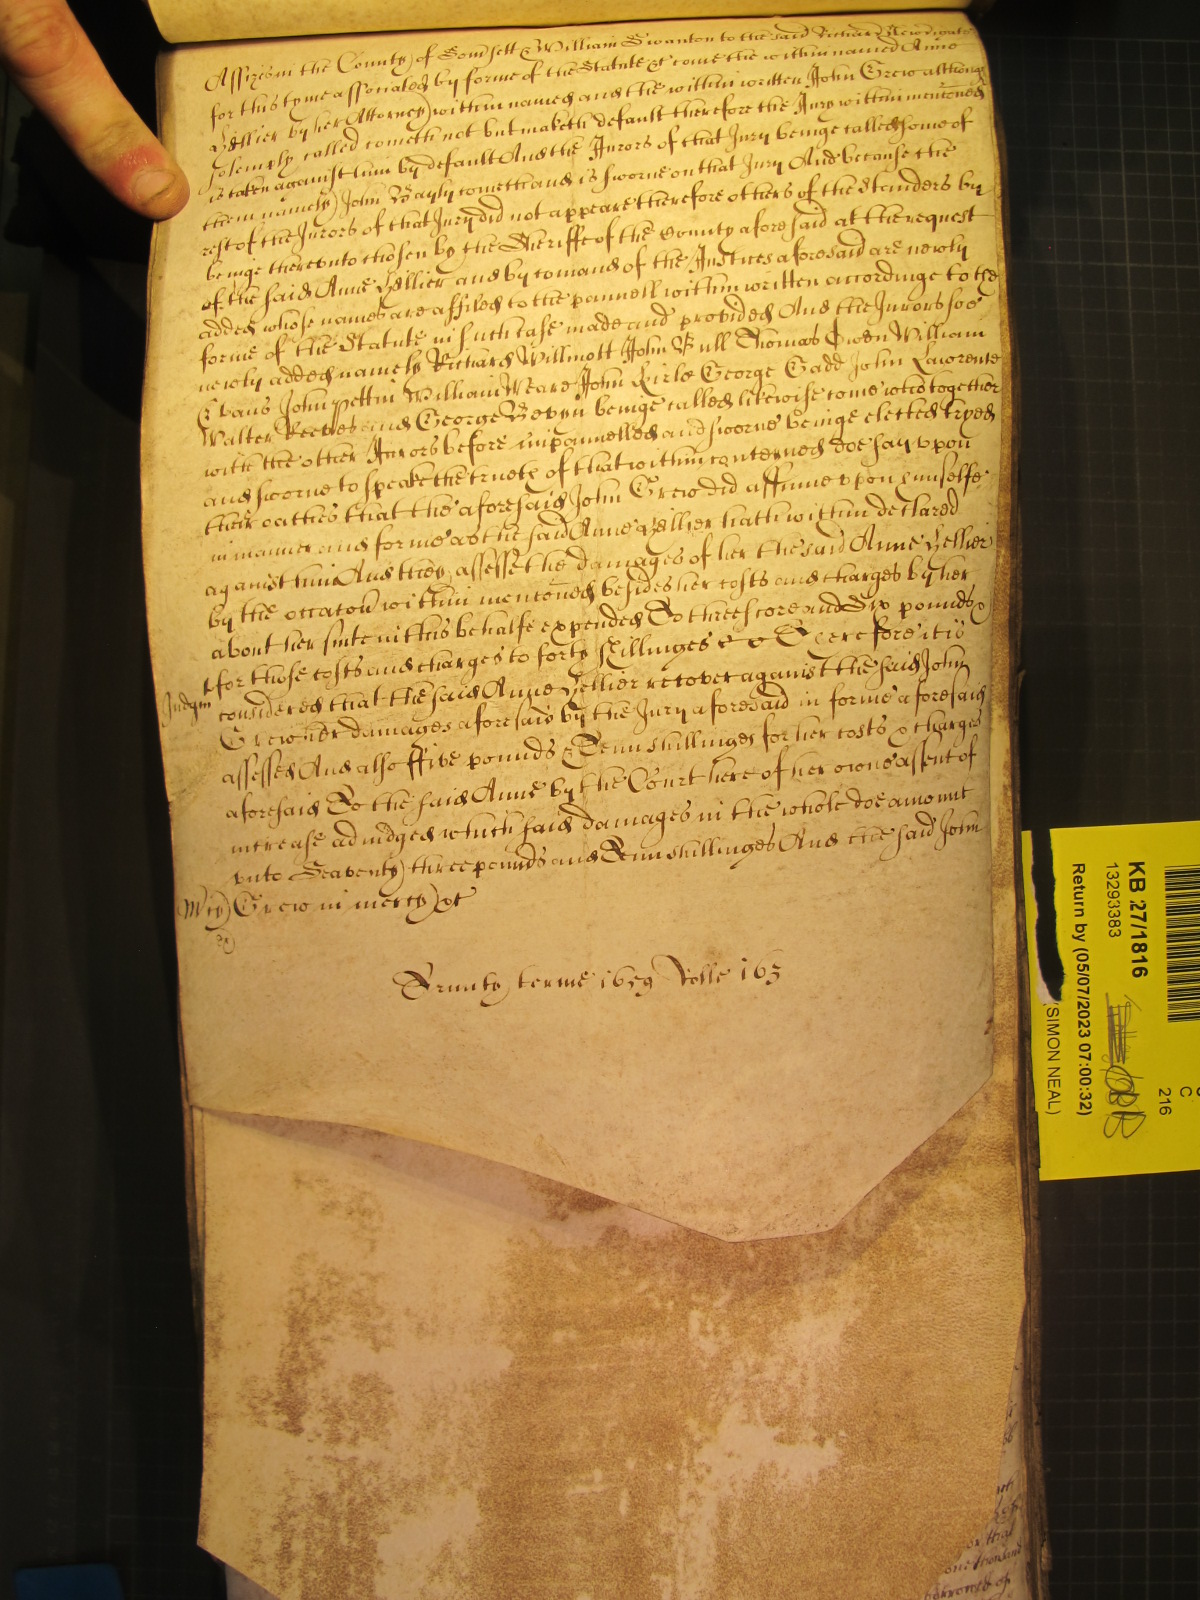 Assizes in the County of Somsett & William Swanton to the said Richard Newdigate
for this tyme associated by forme of the Statute &c come the within named Anne
Hellier by her Attorney within named and the within written John Grew although
solemply called cometh not but maketh default therefore the Jury within mencõned
is taken against him by default And the Jurors of that Jury beinge called some of
them namely John Bayly cometh and is sworne on that Jury And because the
rest of the Jurors of that Jury did not appeare therefore others of the standers by
beinge thereunto chosen by the Sheriffe of the County aforesaid at the request
of the said Anne Hellier and by comand of the Justices aforesaid are newly
added whose names are affiled to the pannell within written accordinge to the
forme of the Statute in such case made and provided And the Jurors soe
newly added namely Richard Willmott John Bull Thomas Owen William
Evans John Pettin William Weare John Kirle George Gadd John Lawrence
Walter Reeves and George Bevyn beinge called likewise come who together
with the other Jurors before impannelled and sworne beinge elected tryed
and sworne to speake the trueth of that within conteyned doe say upon
their oathes that the aforesaid John Grew did assume upon himselfe
in manner and forme as the said Anne Hellier hath within declared
against him And they assesse the damages of her the said Anne Hellier
by the occacõn within mencõned besides her costs and charges by her
about her suite in this behalfe expended To threescore and Six pounds &
for those costs and charges to forty shillinges Therefore it is
Judgm considered that the said Anne Hellier recover against the said John
Grew her damages aforesaid by the Jury aforesaid in forme aforesaid
assessed And also ffive pounds & Tenn shillinges for her costs & charges
aforesaid To the said Anne by the Court here of her owne assent of
increase adiudged which said damages in the whole doe amount
unto Seaventy three pounds and Tenn shillinges And the said John
Mcy Grew in mercy &c
Trinity terme 1659 Rolle 163
KB 27/1816
13293383
Return by (05/07/2023 07:00:32)
(SIMON NEAL)
216
C